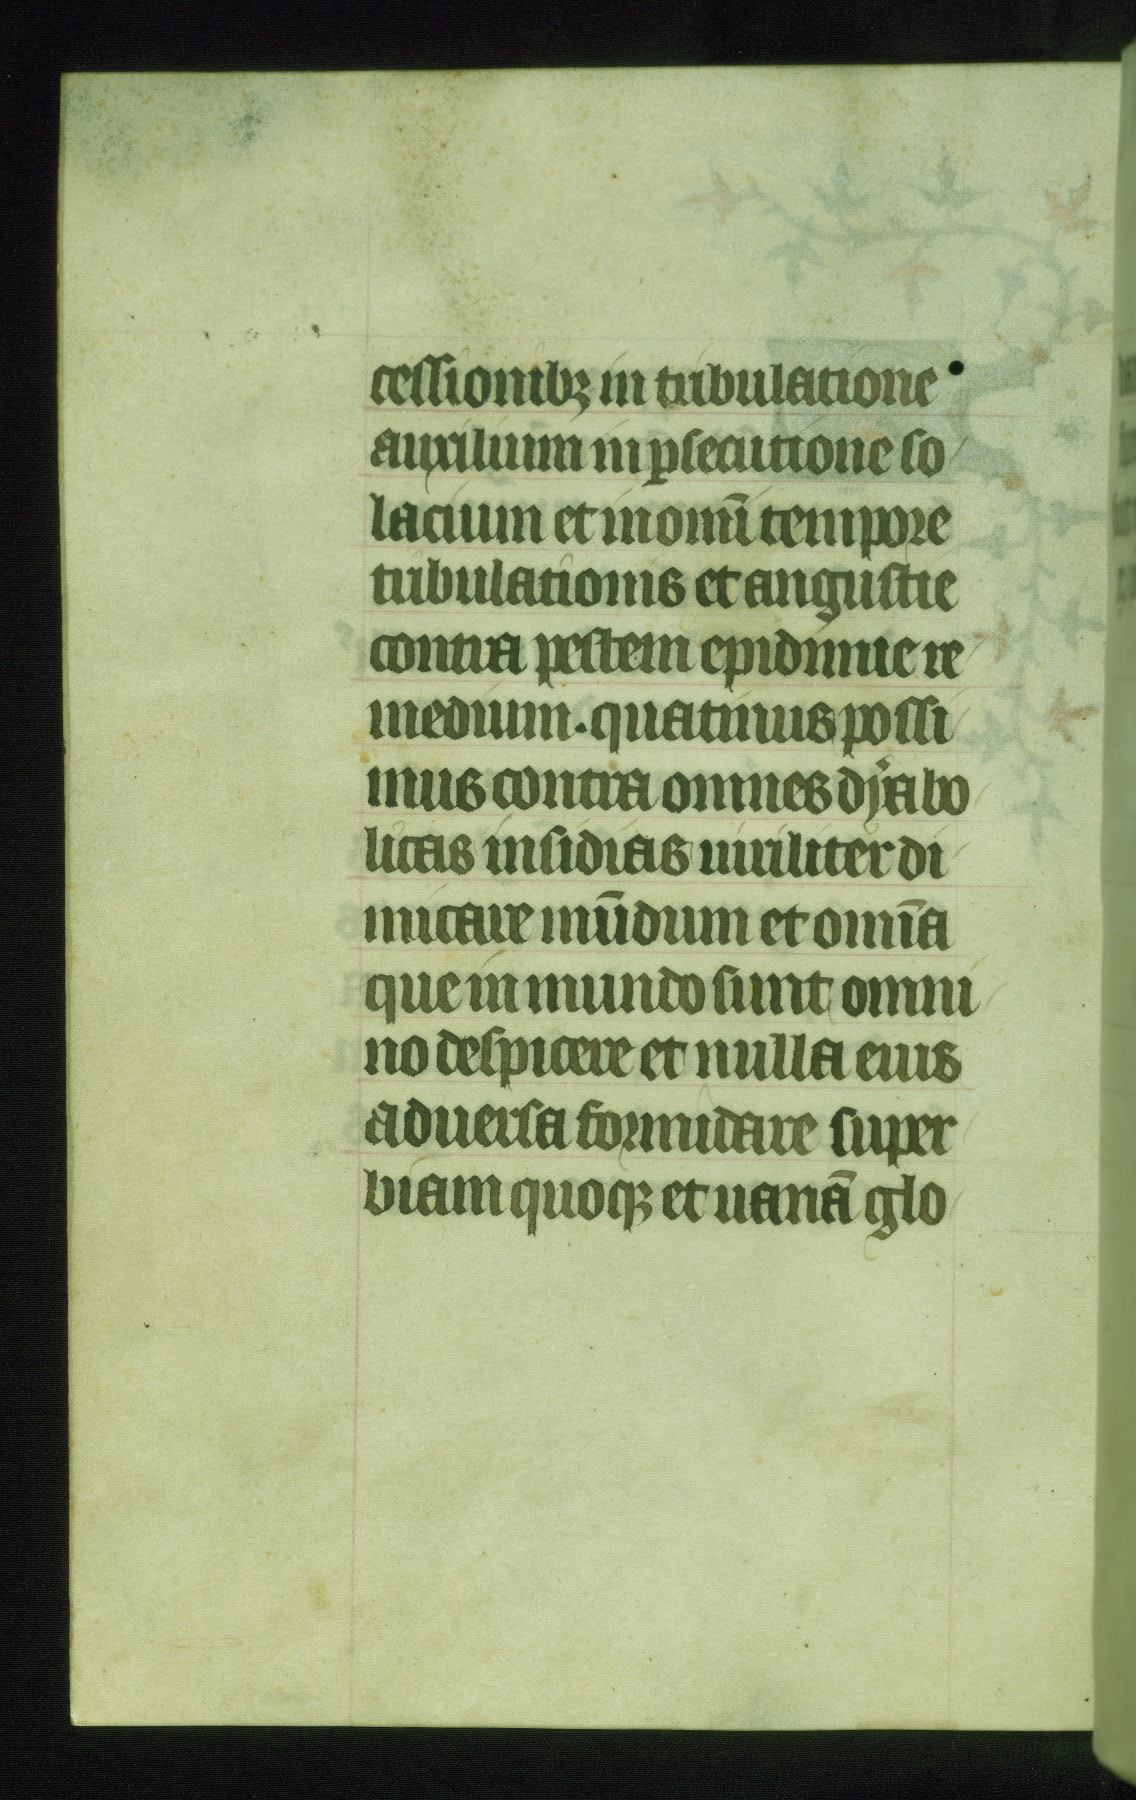 cessionibꝫ in tribulatione
auxilium in ꝑsecutione so
lacium et in omī tempore
tribulationis et angustie
contra pestem epidimie re
medium. quatinus possi
mus contra omnes dyabo
licas insidias uiriliter di
micare mūdum et omīa
que in mundo sunt omni
no despicere et nulla eius
aduersa formidare super
biam quoqꝫ et uanā glo